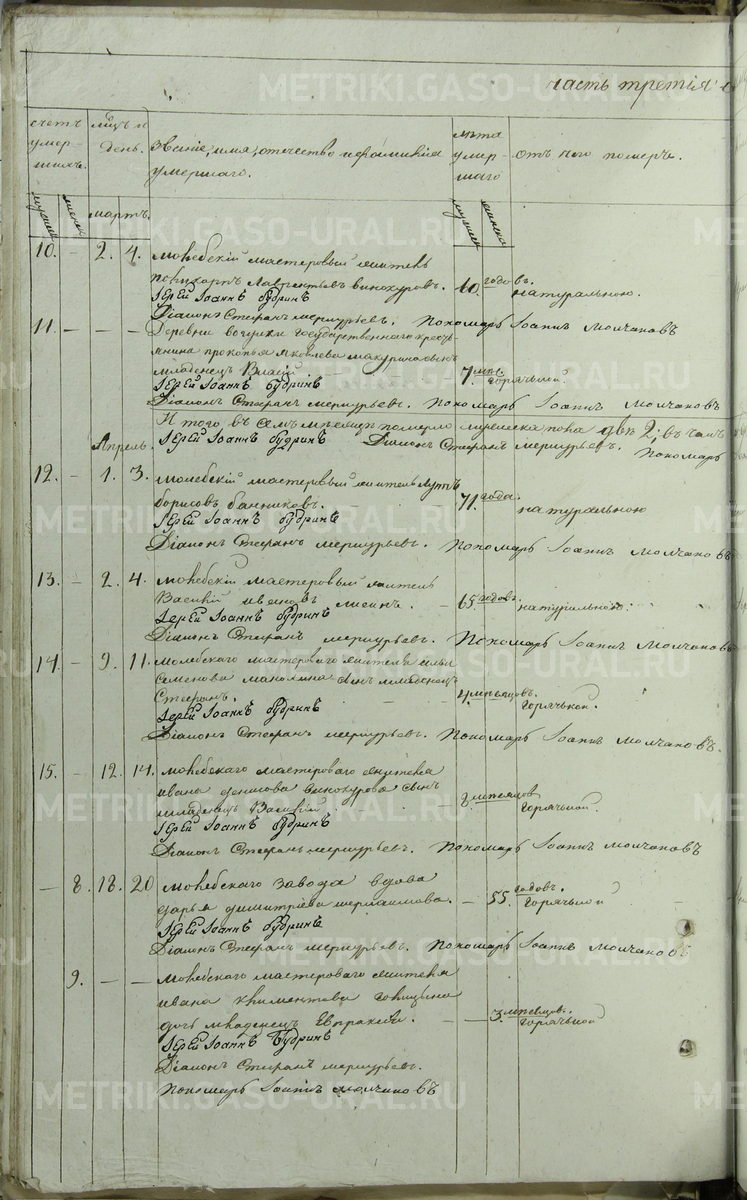 часть третія
счетъ умершихъ.
мужеска
женска
мцъ и день.
мартъ.
званіе, имя, отечество и фамилія
умершаго.
лѣта умершаго
мужеска
женска
отъ чего померъ.
10. – 2. 4. молебскій мастеровый житель
Лаврентьевъ винокуровъ. 60. годовъ. натуральною.
Іерей Іоаннъ Будринъ
Діаконъ Стефанъ меркурьевъ. Пономарь Іоаннъ Молчановъ
11. – – – Деревни вогулки государственнаго кресть-
янина прокопья Яковлева сынъ
младенецъ Власій – 7. мцъ. горячькой.
Іерей Іоаннъ Будринъ
Діаконъ Стефанъ меркурьевъ. Пономарь Іоаннъ Молчановъ
Итого, въ семъ мѣсяцѣ померло мужеска пола два 2; въ чемъ
Іерей Іоаннъ Будринъ Діаконъ Стефанъ меркурьевъ. Пономарь
Апрель.
12. – 1. 3. молебскій мастеровый житель
борисовъ банниковъ. 71. года. натуральною
Іерей Іоаннъ Будринъ
Діаконъ Стефанъ меркурьевъ. Пономарь Іоаннъ Молчановъ
13. – 2. 4. молебскій мастеровый житель
Василій ивановъ – 65. годовъ. натуральною.
Іерей Іоаннъ Будринъ
Діаконъ Стефанъ меркурьевъ. Пономарь Іоаннъ Молчановъ
14. – 9. 11. молебскаго мастероваго жителя ильи
семенова сынъ младенецъ
Стефанъ. – – мѣсяцовъ. горячькой.
Іерей Іоаннъ Будринъ
Діаконъ Стефанъ меркурьевъ. Пономарь Іоаннъ Молчановъ.
15. – 12. 14. молебскаго мастероваго жителя
ивана денисова винокурова сынъ
младенецъ Василій – мѣсяцов горячькой.
Іерей Іоаннъ Будринъ
Діаконъ Стефанъ меркурьевъ. Пономарь Іоаннъ Молчановъ
– 8. 18. 20 молебскаго завода вдова
дарья димитріева – 55. годовъ. горячькой
Іерей Іоаннъ Будринъ
Діаконъ Стефанъ меркурьевъ. Пономарь Іоаннъ Молчановъ
9. – – молебскаго мастероваго жителя
ивана климентова голицына
дочь младенецъ Евпраксія. – – 3. мѣсяцов. горячькой
Іерей Іоаннъ Будринъ
Діаконъ Стефанъ меркурьевъ.
Пономарь Іоаннъ Молчановъ
METRIKI.GASO-URAL.RU